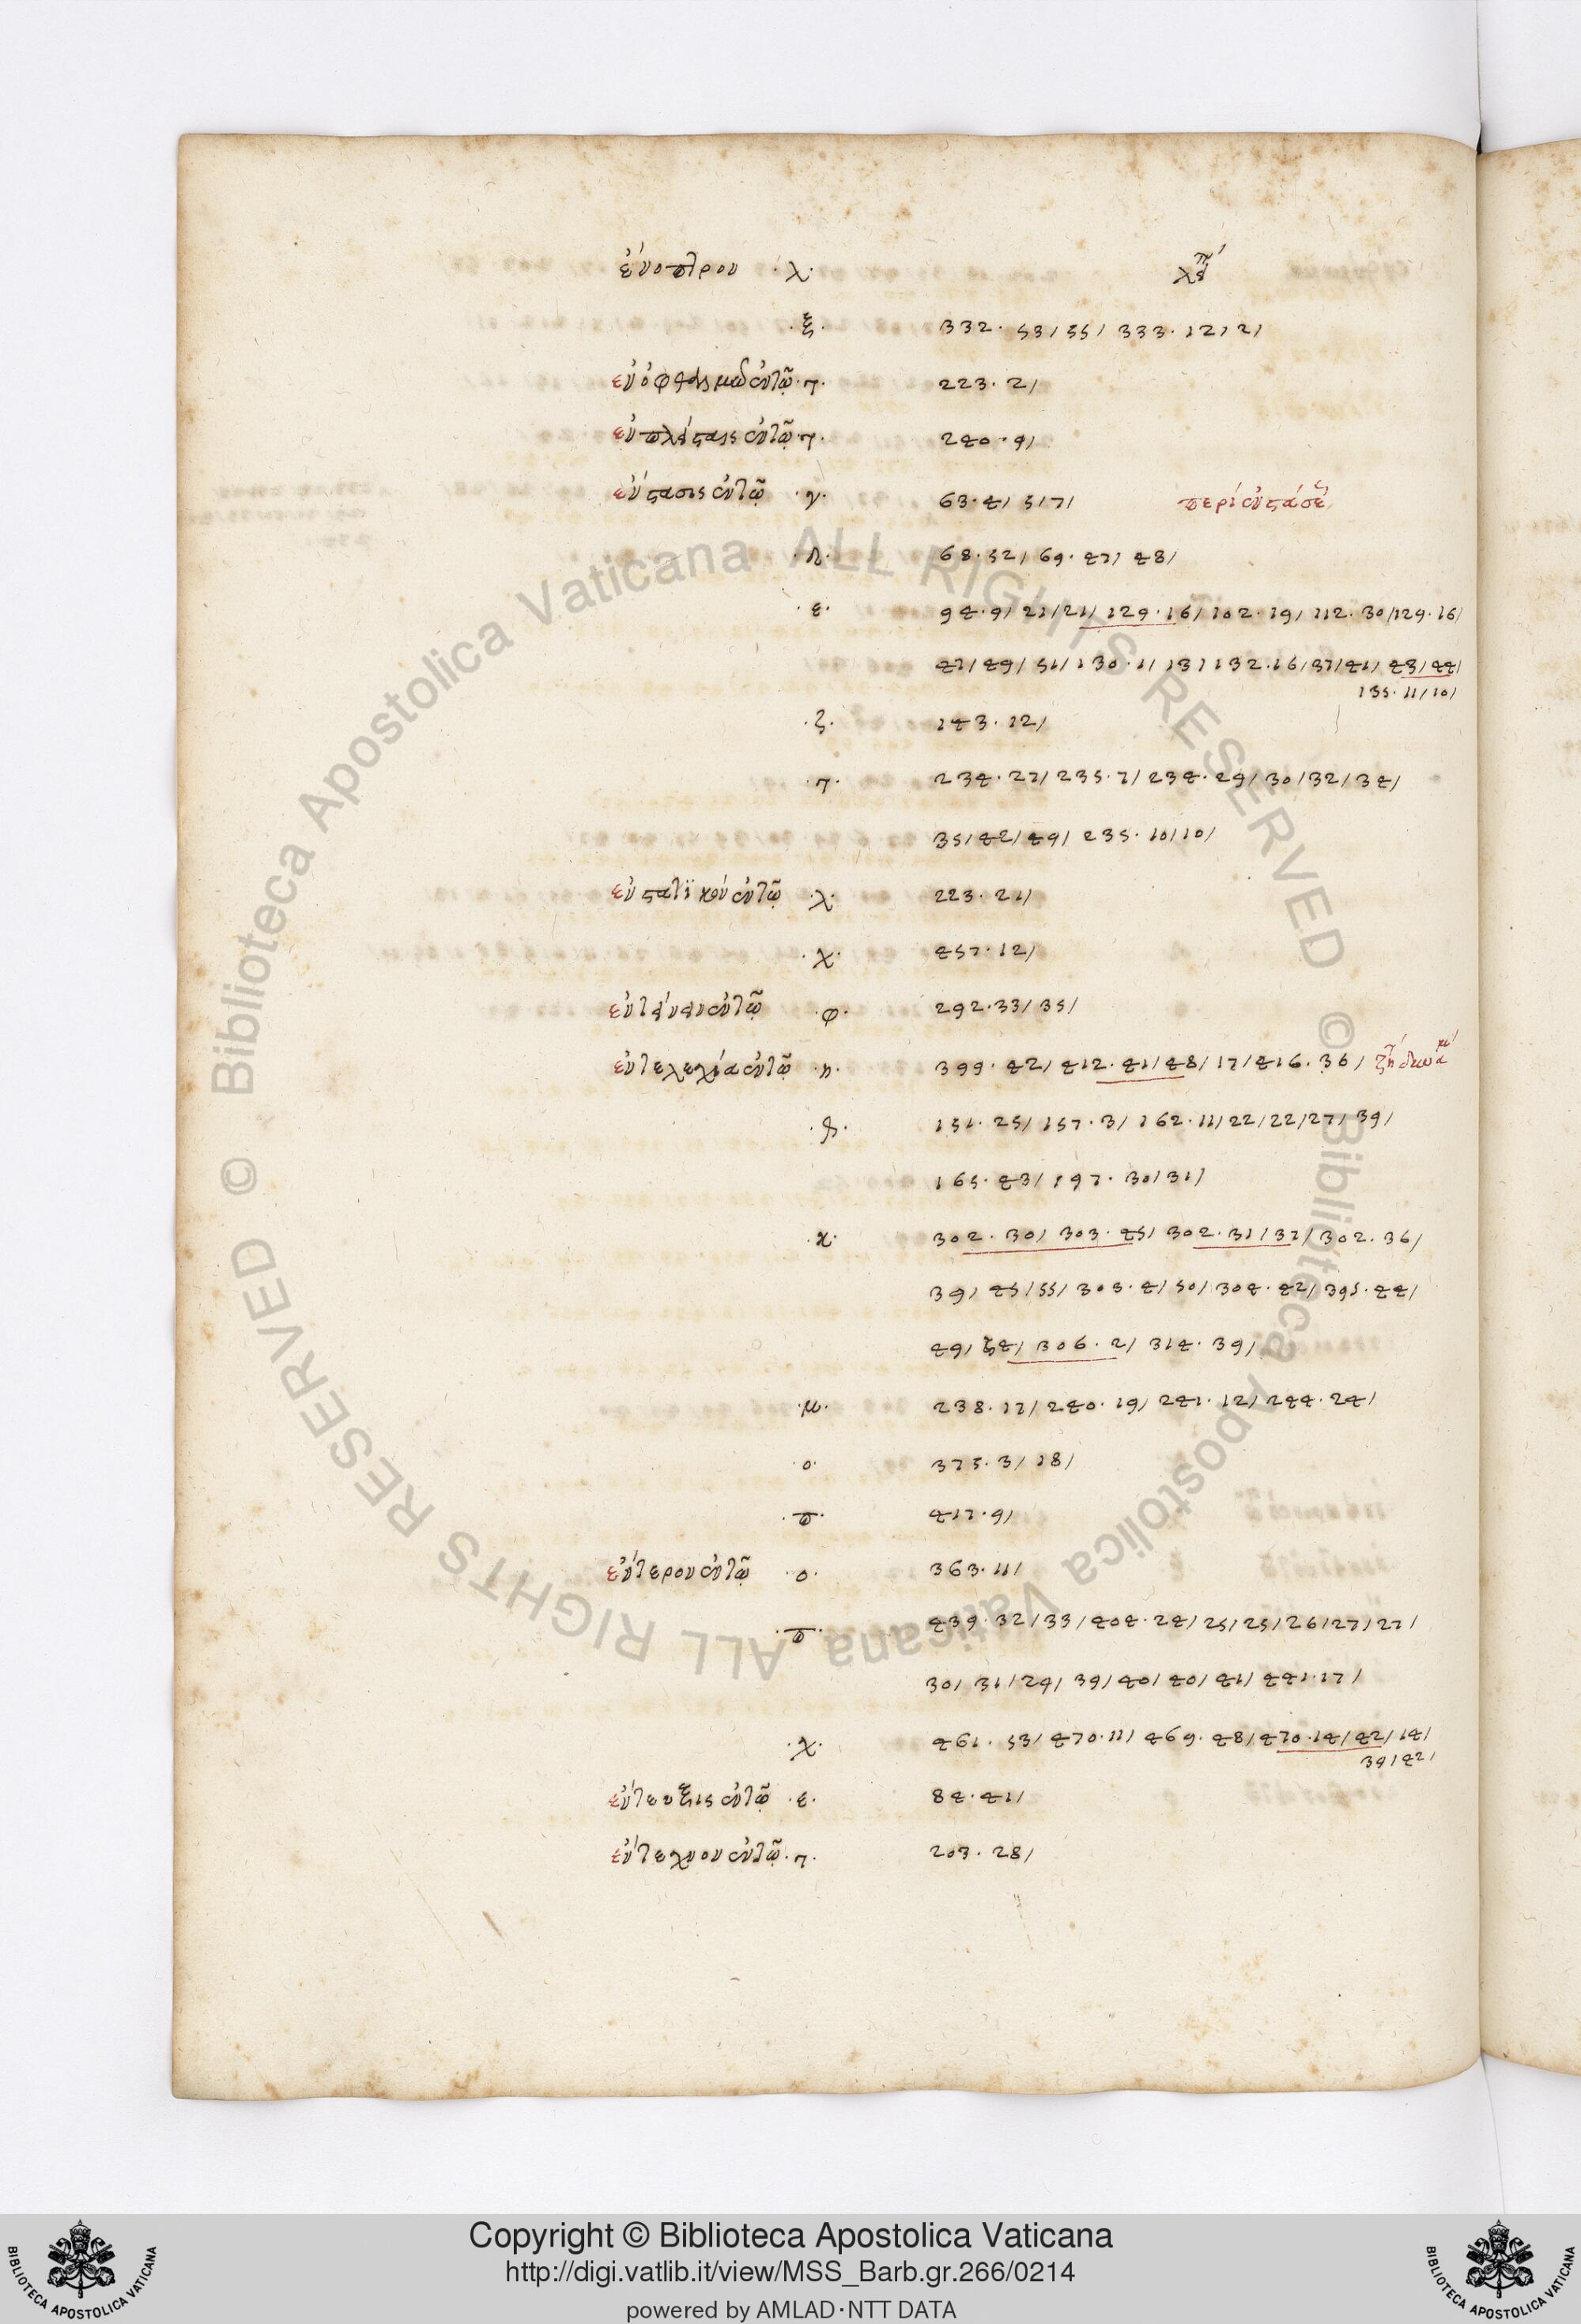 ἔνοπτρον ·λ·
·ξ· 332· 53/ 55/ 333· 12/ 2/
ἐν ὀφθαλμῶ ἐν τῶ ·π· 223· 2/
240· 9/
ἔνστασις ἐν τῶ ·γ· 63· 4/ 5/ 7/ περὶ ἐνστάσε
68· 52/ 69· 47/ 48/
·ε· 94· 9/ 21/ 21/ 129· 16/ 102· 19/ 112· 30/ 129· 16/
47/ 49/ 51/ 130· 11/ 13/ 132· 16/ 37/ 41/ 43/ 44/
135· 11/ 10/
·ζ· 143· 12/
234· 27/ 235· 7/ 234· 29/ 30/ 32/ 34/
35/ 42/ 49/ 235· 10/ 10/
ἐνστατικὸν ἐν τῶ ·λ· 223· 21/
·χ· 457· 12/
ἐν τῶ ·φ· 292· 33/ 35/
ἐντελεχεία ἐν τῶ ·η· 399· 42/ 412· 41/ 48/ 17/ 416· 36/
151· 25/ 157· 3/ 162· 11/ 22/ 22/ 27/ 39/
165· 43/ 197· 30/ 31/
·κ· 302· 30/ 303· 45/ 302· 31/ 32/ 302· 36/
39/ 45/ 55/ 303· 4/ 50/ 304· 42/ 395· 44/
49/ 54/ 306· 2/ 314· 39/
·μ· 238· 17/ 240· 19/ 241· 12/ 244· 24/
·ο· 375· 3/ 18/
·π· 417· 9/
ἔντερον ἐν τῶ ·ο· 363· 11/
·π· 439· 32/ 33/ 404· 24/ 25/ 25/ 26/ 27/ 27/
30/ 31/ 29/ 39/ 40/ 40/ 41/ 441· 17/
·χ· 461· 53/ 470· 11/ 469· 48/ 470· 14/ 42/ 14/
39/ 42/
ἔντευξις ἐν τῶ ·ε· 84· 41/
ἔντεχνον ἐν τῶ 203· 28/
© Biblioteca Apostolica Vaticana ALL RIGHTS RESERVED © Biblioteca Apostolica Vaticana ALL RIGHTS RESERVED
Copyright © Biblioteca Apostolica Vaticana
http://digi.vatlib.it/view/MSS_Barb.gr.266/0214
powered by AMLAD·NTT DATA
BIBLIOTECA APOSTOLICA VATICANA
BIBLIOTECA APOSTOLICA VATICANA